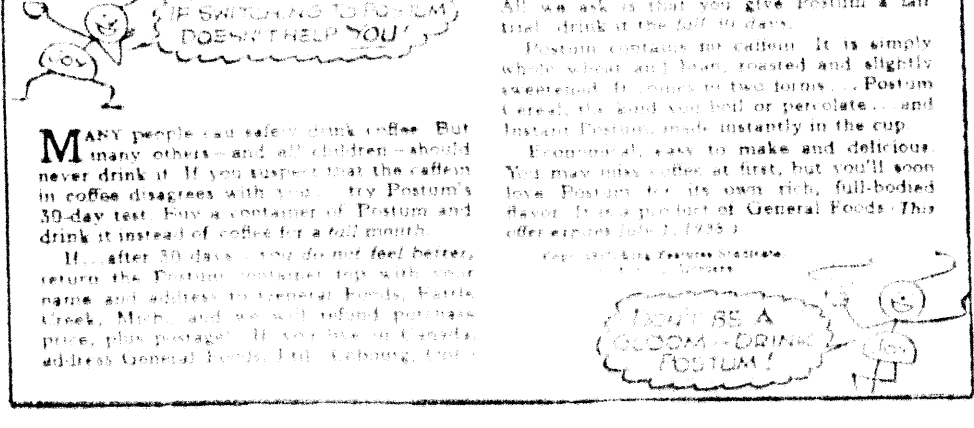 IF SWITCHING TO POSTUM
DOESN'T HELP YOU!
JOY
MANY people can safely drink coffee. But
many others—and all children—should
never drink it. If you suspect that the caffein
in coffee disagrees with you... try Postum's
30-day test. Buy a container of Postum and
drink it instead of coffee for a full month.
If...after 30 days...you do not feel better,
return the Postum container top with your
name and address to General Foods, Battle
Creek, Mich., and we will refund purchase
price, plus postage! If you live in Canada,
address General Foods, Ltd., Cobourg, Ont.
All we ask is that you give Postum a fair
trial—drink it the full 30 days.
Postum contains no caffein. It is simply
whole wheat and bran, roasted and slightly
sweetened. It comes in two forms... Postum
Cereal, the kind you boil or percolate...and
Instant Postum, made instantly in the cup.
Economical, easy to make and delicious.
You may miss coffee at first, but you'll soon
love Postum for its own rich, full-bodied
flavor. It is a product of General Foods. (This
offer expires July 1, 1938.)
King Features Syndicate,
DON'T BE A
GLOOM—DRINK
POSTUM!
JOY